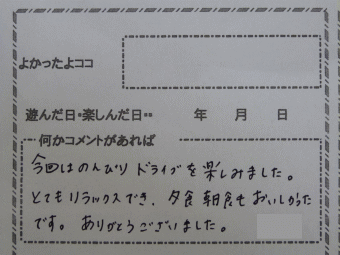 よかったよココ
遊んだ日・楽しんだ日・・ 年 月 日
何かコメントがあれば
今回はのんびり ドライブを楽しみました。
とてもリラックスでき、夕食 朝食もおいしかった
です。ありがとうございました。